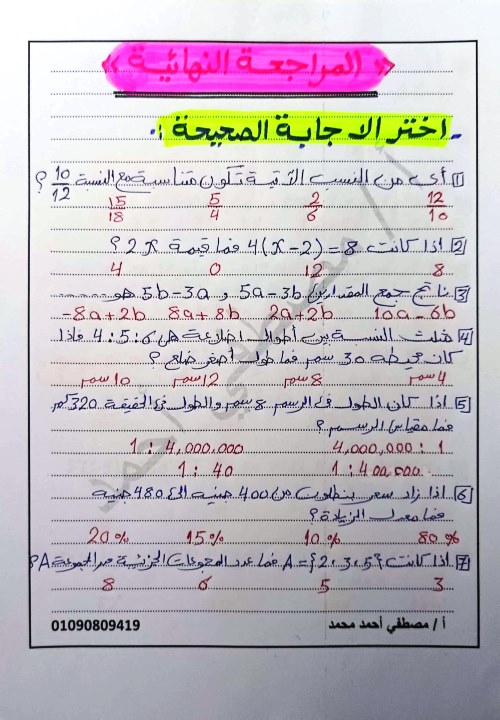 « المراجعة النهائية »
اختر الاجابة الصحيحة :
1) أى من النسب الآتية تكون متناسبة مع النسبة 10/12 ؟
12/10 2/6 5/4 15/18
2) اذا كانت 4(x-2)=8 فما قيمة 2x ؟
8 12 0 4
3) ناتج جمع المقدارين 5a-3b و 5b-3a هو
10a-6b 2a+2b 8a+8b -8a+2b
4) مثلث النسبة بين أطوال اضلاعة هى 4:5:6 فاذا
كان محيطه 30 سم فما طول أصغر ضلع ؟
4 سم 8 سم 12 سم 10 سم
5) اذا كان الطول فى الرسم 8 سم والطول فى الحقيقة 320 كم
فما مقياس الرسم ؟
4,000,000 : 1 1 : 4,000,000
1 : 400,000 1 : 40
6) اذا زاد سعر بنطلون من 400 جنيه الى 480 جنيه
فما معدل الزيادة ؟
80% 10% 15% 20%
7) اذا كانت A={2,3,5} فما عدد المجموعات الجزئية من المجموعة A؟
3 5 6 8
أ / مصطفي أحمد محمد 01090809419
أ / مصطفى أحمد